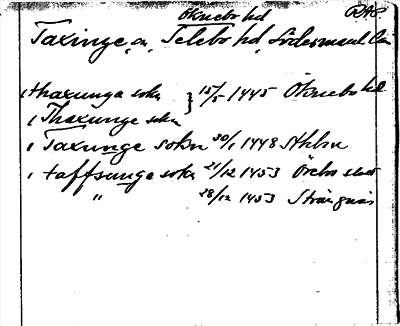 Öknebo hd
RAP
Taxinge, sn, Selebo hd, Södermanl. län
i thaxunga sokn } 15/5 1445 Öknebo hd
i Thaxunge sokn
i Taxunge sokn 30/1 1448
i taffsunge sokn 21/12 1453 Örebo slott
" 28/12 1453 Strängnäs